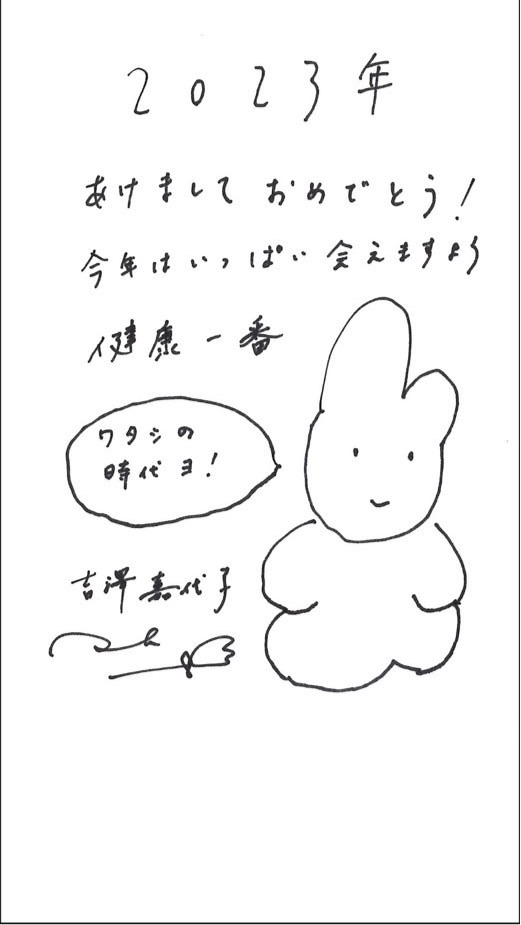 2023年
あけましておめでとう!
今年はいっぱい会えますよう
健康一番
ワタシの
時代ヨ!
吉澤嘉代子